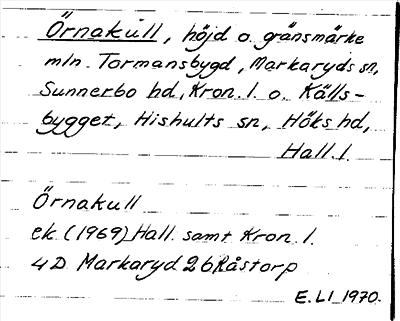 Örnakull, höjd o. gränsmärke
mln. Tormansbygd, Markaryds sn,
Sunnerbo hd, Kron. l. o. Källs-
bygget, Hishults sn, Höks hd,
Hall. l.
Örnakull
ek. (1969) Hall. samt Kron. l.
4D Markaryd 2b Råstorp
E. L1 1970.